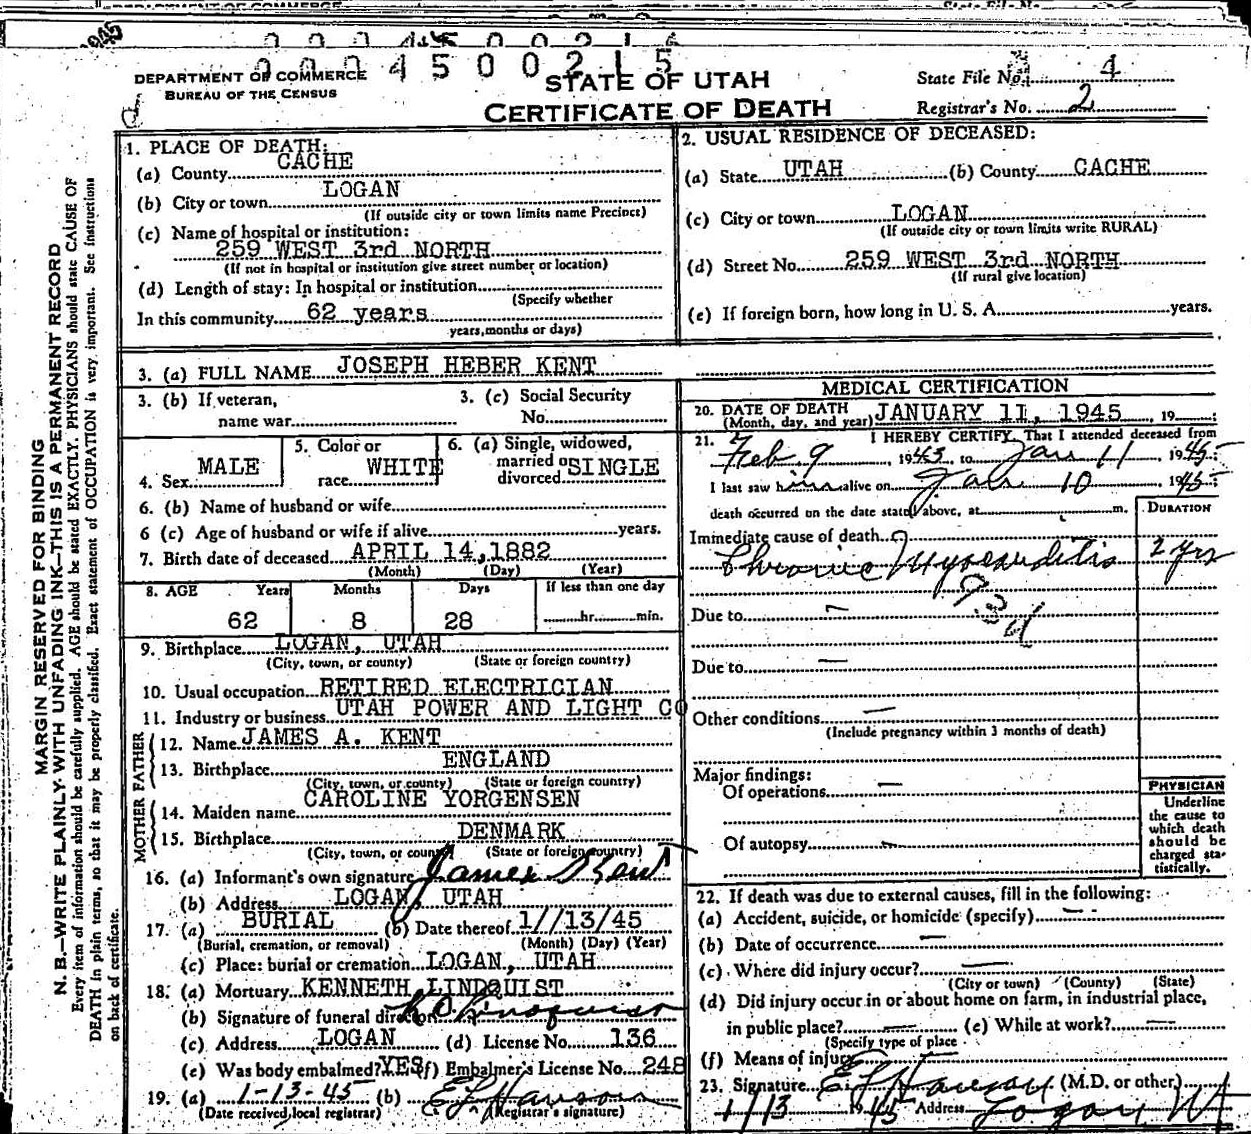 0 0 0 4 5 0 0 2 1 5
DEPARTMENT OF COMMERCE
BUREAU OF THE CENSUS
STATE OF UTAH
CERTIFICATE OF DEATH
State File No. 4
Registrar's No. 2
MARGIN RESERVED FOR BINDING
N. B.—WRITE PLAINLY WITH UNFADING INK—THIS IS A PERMANENT RECORD
Every item of information should be carefully supplied. AGE should be stated EXACTLY. PHYSICIANS should state CAUSE OF
DEATH in plain terms, so that it may be properly classified. Exact statement of OCCUPATION is very important. See instructions
on back of certificate.
1. PLACE OF DEATH:
(a) County CACHE
(b) City or town LOGAN
(If outside city or town limits name Precinct)
(c) Name of hospital or institution:
259 WEST 3rd NORTH
(If not in hospital or institution give street number or location)
(d) Length of stay: In hospital or institution
(Specify whether
In this community 62 years
years, months or days)
2. USUAL RESIDENCE OF DECEASED:
(a) State UTAH (b) County CACHE
(c) City or town LOGAN
(If outside city or town limits write RURAL)
(d) Street No. 259 WEST 3rd NORTH
(If rural give location)
(e) If foreign born, how long in U. S. A. years.
3. (a) FULL NAME JOSEPH HEBER KENT
3. (b) If veteran,
name war
3. (c) Social Security
No.
4. Sex MALE
5. Color or
race WHITE
6. (a) Single, widowed,
married or
divorced SINGLE
6. (b) Name of husband or wife
6 (c) Age of husband or wife if alive years.
7. Birth date of deceased APRIL 14, 1882
(Month) (Day) (Year)
8. AGE Years Months Days If less than one day
62 8 28 hr. min.
9. Birthplace LOGAN, UTAH
(City, town, or county) (State or foreign country)
10. Usual occupation RETIRED ELECTRICIAN
11. Industry or business UTAH POWER AND LIGHT CO
FATHER
12. Name JAMES A. KENT
13. Birthplace ENGLAND
(City, town, or county) (State or foreign country)
MOTHER
14. Maiden name CAROLINE YORGENSEN
15. Birthplace DENMARK
(City, town, or county) (State or foreign country)
16. (a) Informant's own signature James Kent
(b) Address LOGAN, UTAH
17. (a) BURIAL (b) Date thereof 1//13/45
(Burial, cremation, or removal) (Month) (Day) (Year)
(c) Place: burial or cremation LOGAN, UTAH
18. (a) Mortuary KENNETH LINDQUIST
(b) Signature of funeral director Lindquist
(c) Address LOGAN (d) License No. 136
(e) Was body embalmed? YES (f) Embalmer's License No. 248
19. (a) 1-13-45 (b) E L Hanson
(Date received local registrar) (Registrar's signature)
MEDICAL CERTIFICATION
20. DATE OF DEATH JANUARY 11, 1945, 19
(Month, day, and year)
21. I HEREBY CERTIFY, That I attended deceased from
Feb 9, 1943, to Jan 11 1945
I last saw him alive on Jan 10 1945;
death occurred on the date stated above, at m.
DURATION
Immediate cause of death
Chronic Myocarditis 2 yrs
93d
Due to —
Due to —
Other conditions —
(Include pregnancy within 3 months of death)
Major findings:
Of operations —
Of autopsy —
PHYSICIAN
Underline
the cause to
which death
should be
charged sta-
tistically.
22. If death was due to external causes, fill in the following:
(a) Accident, suicide, or homicide (specify) —
(b) Date of occurrence —
(c) Where did injury occur? —
(City or town) (County) (State)
(d) Did injury occur in or about home on farm, in industrial place,
in public place? — (e) While at work? —
(Specify type of place
(f) Means of injury —
23. Signature E L Hanson (M.D. or other)
1/13 1945 Address Logan, Ut